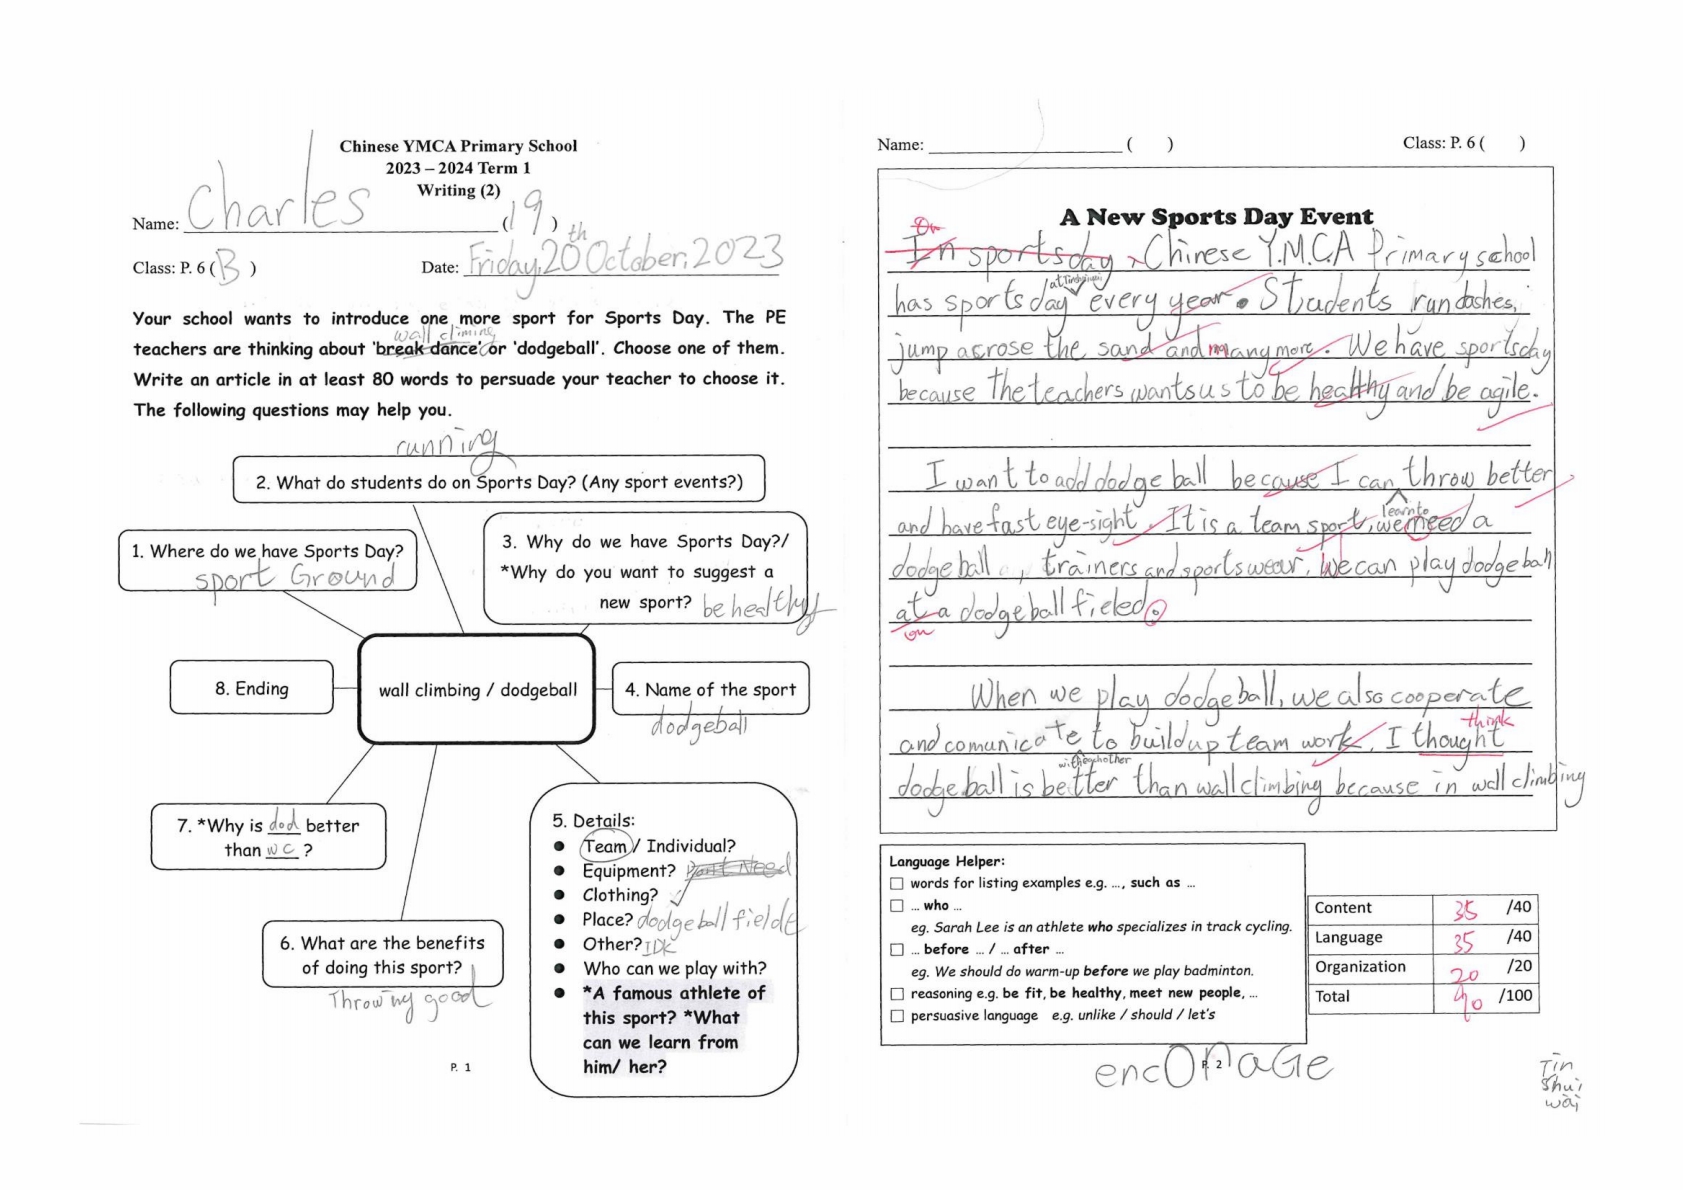 Chinese YMCA Primary School
2023 – 2024 Term 1
Writing (2)
Name: Charles (19)
Class: P. 6 (B) Date: Friday, 20th October, 2023
Your school wants to introduce one more sport for Sports Day. The PE
wall climing
teachers are thinking about 'break dance' or 'dodgeball'. Choose one of them.
Write an article in at least 80 words to persuade your teacher to choose it.
The following questions may help you.
running
2. What do students do on Sports Day? (Any sport events?)
1. Where do we have Sports Day?
sport Ground
3. Why do we have Sports Day?/
*Why do you want to suggest a
new sport? be healthy
8. Ending
wall climbing / dodgeball
4. Name of the sport
dodgeball
7. *Why is dod better
than wc ?
6. What are the benefits
of doing this sport?
Throwing good
5. Details:
● Team / Individual?
● Equipment? Don't Need
● Clothing? ✓
● Place? dodgeball fielde
● Other? IDK
● Who can we play with?
● *A famous athlete of
this sport? *What
can we learn from
him/ her?
P. 1
Name: ( ) Class: P. 6 ( )
A New Sports Day Event
On
In sportsday, Chinese Y.M.C.A Primary school
has sports day every year. Students run dashes,
jump acrose the sand and many more. We have sportsday
because the teachers wants us to be healthy and be agile.
I want to add dodge ball because I can throw better
learn to
and have fast eye-sight. It is a team sport, we need a
dodge ball, trainers and sports wear. We can play dodgeball
at a dodgeball fieled.
on
When we play dodgeball, we also cooperate
think
and comunicate to build up team work. I thought
with each other
dodgeball is better than wall climbing because in wall climbing
Language Helper:
☐ words for listing examples e.g. …, such as …
☐ … who …
eg. Sarah Lee is an athlete who specializes in track cycling.
☐ … before … / … after …
eg. We should do warm-up before we play badminton.
☐ reasoning e.g. be fit, be healthy, meet new people, …
☐ persuasive language e.g. unlike / should / let's
Content 35 /40
Language 35 /40
Organization 20 /20
Total 90 /100
P. 2
Tin
Shui
wai